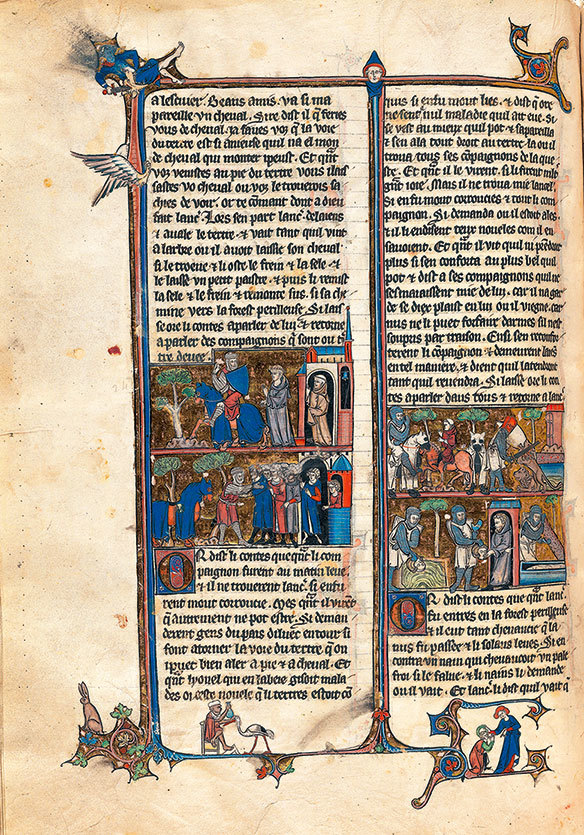 a lescuier. Beaus amis. va si ma
pareille vn cheual. Sire dist il q̃ feres
vous de cheual. ja saues voꝯ q̃ la voie
du tertre est si anieuse quil na el mon
de cheual qui monter peust. Et qñt
voꝯ venistes au pie du tertre vous ilais
sastes vo cheual ou voꝯ le trouerois sa
ches de voir. or te cōmant dont a dieu
fait lanc̾. Lors sen part lanc̾. delaiens
⁊ auale le tertre. ⁊ vait tant quil vint
a larbre ou il auoit laisse son cheual
si le troeue ⁊ li oste le frein ⁊ la sele ⁊
le laisse vn petit paistre. ⁊ puis li remist
la sele ⁊ le frein ⁊ remonte sus. si sa che
mine vers la forest perilleuse. Si lais
se ore li contes a parler de luy ⁊ retorne
a parler des compaignons q̃ sont ou t̾
tre deuee.
OR dist li contes que qñt li com
paignon furent au matin leue.
⁊ il ne trouerent lanc̾. si enfu
rent mout corroucie. Mes qñt il virēt
q̃ autrement ne pot estre. Si deman
derent gens du pais diluec entour si
font atorner la voie du tertre q̃ on
i puet bien aler a pie ⁊ a cheual. Et
qñt lyonel qui en labeie gisoit mala
des oi ceste nouele q̃ li tertres estoit cō
nuis si enfu mout lies. ⁊ dist q̃ ore
ne sent nul maladie quil ait eue. Si
se vest au mieux quil pot ⁊ sapareilla
⁊ sen ala tout droit au tertre. la ou il
troua tous ses cōpaignons de la que
ste. Et qñt il le virent. si li firent mlt̾
grñt ioie. Mais il ne troua mie lanc̾.
Si en fu mout corroucies ⁊ tout li com
paignon. Si demanda ou il estoit ales
⁊ il li en disent teux noueles com il en
sauoient. Et qñt il vit quil ni p̃ndroit
plus si sen conforta au plus bel quil
pot ⁊ dist a ses compaignons quil ne
sesmaiassent mie de luy. car il na gar
de se diex plaist en lieu ou il viegne. car
nus ne li puet forfaire darmes sil nest
soupris par traison. Ensi sen reconfor
terent li cōpaignon ⁊ demeurent laiēs
en tel maniere. ⁊ dient quil latendront
tant quil reuendra. Si laisse ore li con
tes a parler dans tous ⁊ retorne a lanc̾
OR dist li contes que qñt lanc̾.
fu entres en la forest perilleuse
⁊ il eut tant cheuaucie q̃ la
nuis fu passee ⁊ li solaus leues. Si en
contra vn nain qui cheuaucoit vn pale
froi si le salue. ⁊ li nains li demande
ou il vait. Et lanc̾ li dist quil vait q̃